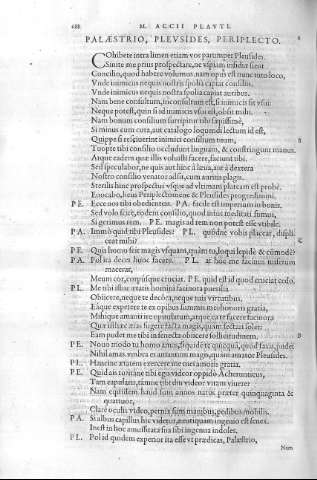 688 M. ACCII PLAVTI
PALÆSTRIO, PLEVSIDES, PERIPLECTO.
COhibete intra limen etiam vos parumper Pleusides.
Sinite me prius prospectare, ne vspiam insidiæ sient
Concilio, quod habere volumus. nam opus est nunc tuto loco,
Vnde inimicus ne quis nostri spolia capiat consilij.
Vnde inimicus ne quis nostra spolia capiat auribus.
Nam bene consultum, inconsultum est, si inimicis sit vsui.
Neque potest, quin si id inimicis vsui est, obsit mihi.
Nam bonum consilium surripitur sæpissimè,
Si minus cum cura, aut locus loquendi lectus est,
Quippe si resciuerint inimici consilium tuum,
Tuopte tibi consilio occludunt linguam, & constringunt manus.
Atque eadem quæ illis voluisti facere, faciunt tibi.
Sed speculabor, ne quis aut hinc à læua, aut à dextera
Nostro consilio venator adsit, cum auritis plagis.
Sterilis hinc prospectus vsque ad vltimam plateam est probè.
Euocabo. heus Periplectomene & Pleusides progredimini.
PE. Ecce nos tibi obedientes. PA. facile est imperium in bonis.
Sed volo scire, eodem consilio, quod intus meditati sumus,
Si gerimus rem. PE. magis ad rem non potest esse vtibile.
PA. Immò quid tibi Pleusides? PL. quódne vobis placeat, displiceat
mihi?
PE. Quis homo sit magis meus quàm tu, loqui lepidè & commodè?
PA. Pol ita decet hunc facere. PL. at hoc me facinus miserum
macerat,
Meum cor, corpúsque cruciat. PE. quid est id quod cruciat cedo.
PL. Me tibi istuc ætatis homini facinora puerilia
Obiicere, neque te decóra, neque tuis virtutibus.
Ea que expetere te ex opibus summis mei honoris gratia,
Mihique amanti ire opitulatum, atque ea te facere facinora
Quæ istæc ætas fugere facta magis, quàm sectari solet:
Eam pudet me tibi in senecta obiicere sollicitudinem.
PE. Nouo modo tu homo amas, siquidem te quicquã, quod faxis, pudet
Nihil amas. vmbra es amantum magis, quàm amator Pleusides.
PL. Hanccine ætatem exercere me mei amoris gratia.
PE. Quid ais tu? itane tibi ego videor oppidò Acherunticus,
Tam capularis, támne tibi diu videor vitam viuere?
Nam equidem haud sum annos natus præter quinquaginta &
quatuor,
Clarè oculis video, pernix sum manibus, pedibus mobilis.
PA. Si albus capillus hic videtur, neutiquam ingenio est senex.
Inest in hoc amussitata sua sibi ingenua indoles.
PL. Pol id quidem experior ita esse vt prædicas, Palæstrio,
Nam